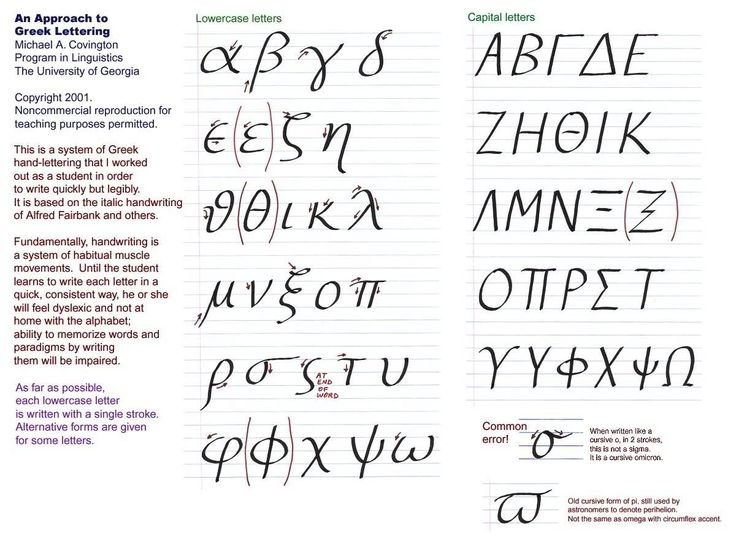 An Approach to
Greek Lettering
Michael A. Covington
Program in Linguistics
The University of Georgia
Copyright 2001.
Noncommercial reproduction for
teaching purposes permitted.
This is a system of Greek
hand-lettering that I worked
out as a student in order
to write quickly but legibly.
It is based on the italic handwriting
of Alfred Fairbank and others.
Fundamentally, handwriting is
a system of habitual muscle
movements. Until the student
learns to write each letter in a
quick, consistent way, he or she
will feel dyslexic and not at
home with the alphabet;
ability to memorize words and
paradigms by writing
them will be impaired.
As far as possible,
each lowercase letter
is written with a single stroke.
Alternative forms are given
for some letters.
Lowercase letters
α β γ δ
ϵ (ε) ζ η
ϑ (θ) ι κ λ
μ ν ξ ο π
ρ σ ς τ υ
AT
END
OF
WORD
φ (ϕ) χ ψ ω
Capital letters
Α Β Γ Δ Ε
Ζ Η Θ Ι Κ
Λ Μ Ν Ξ (Ξ)
Ο Π Ρ Σ Τ
ϒ Υ Φ Χ Ψ Ω
Common
error!
σ
When written like a
cursive o, in 2 strokes,
this is not a sigma.
It is a cursive omicron.
ϖ
Old cursive form of pi, still used by
astronomers to denote perihelion.
Not the same as omega with circumflex accent.